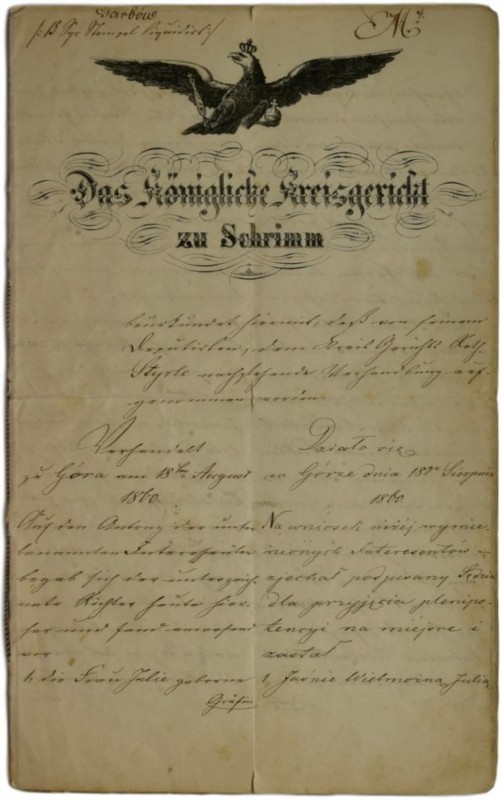 Garbów
Stempel liquidirt
M
Das Königliche Kreisgericht
zu Schrimm
beurkundet hiermit, daß von seinem
Deputirten, dem Kreis Gerichts Rath
Styrle nachstehende Verhandlung auf-
genommen worden
Verhandelt
zu Góra am 18ten August
1860.
Auf den Antrag der unten
benannten Interessenten
begab sich der unterzeich-
nete Richter heute hier-
her und fand anwesend
vor:
1, die Frau Julie geborne
Gräfin
Działo się
w Górze dnia 18go Sierpnia
1860.
Na wniosek niżej wymie-
nionych Interesentów
zjechał podpisany Sędzia
dla przyjęcia plenipo-
tencyi na miejsce i
zastał
1, Jaśnie Wielmożna Julia